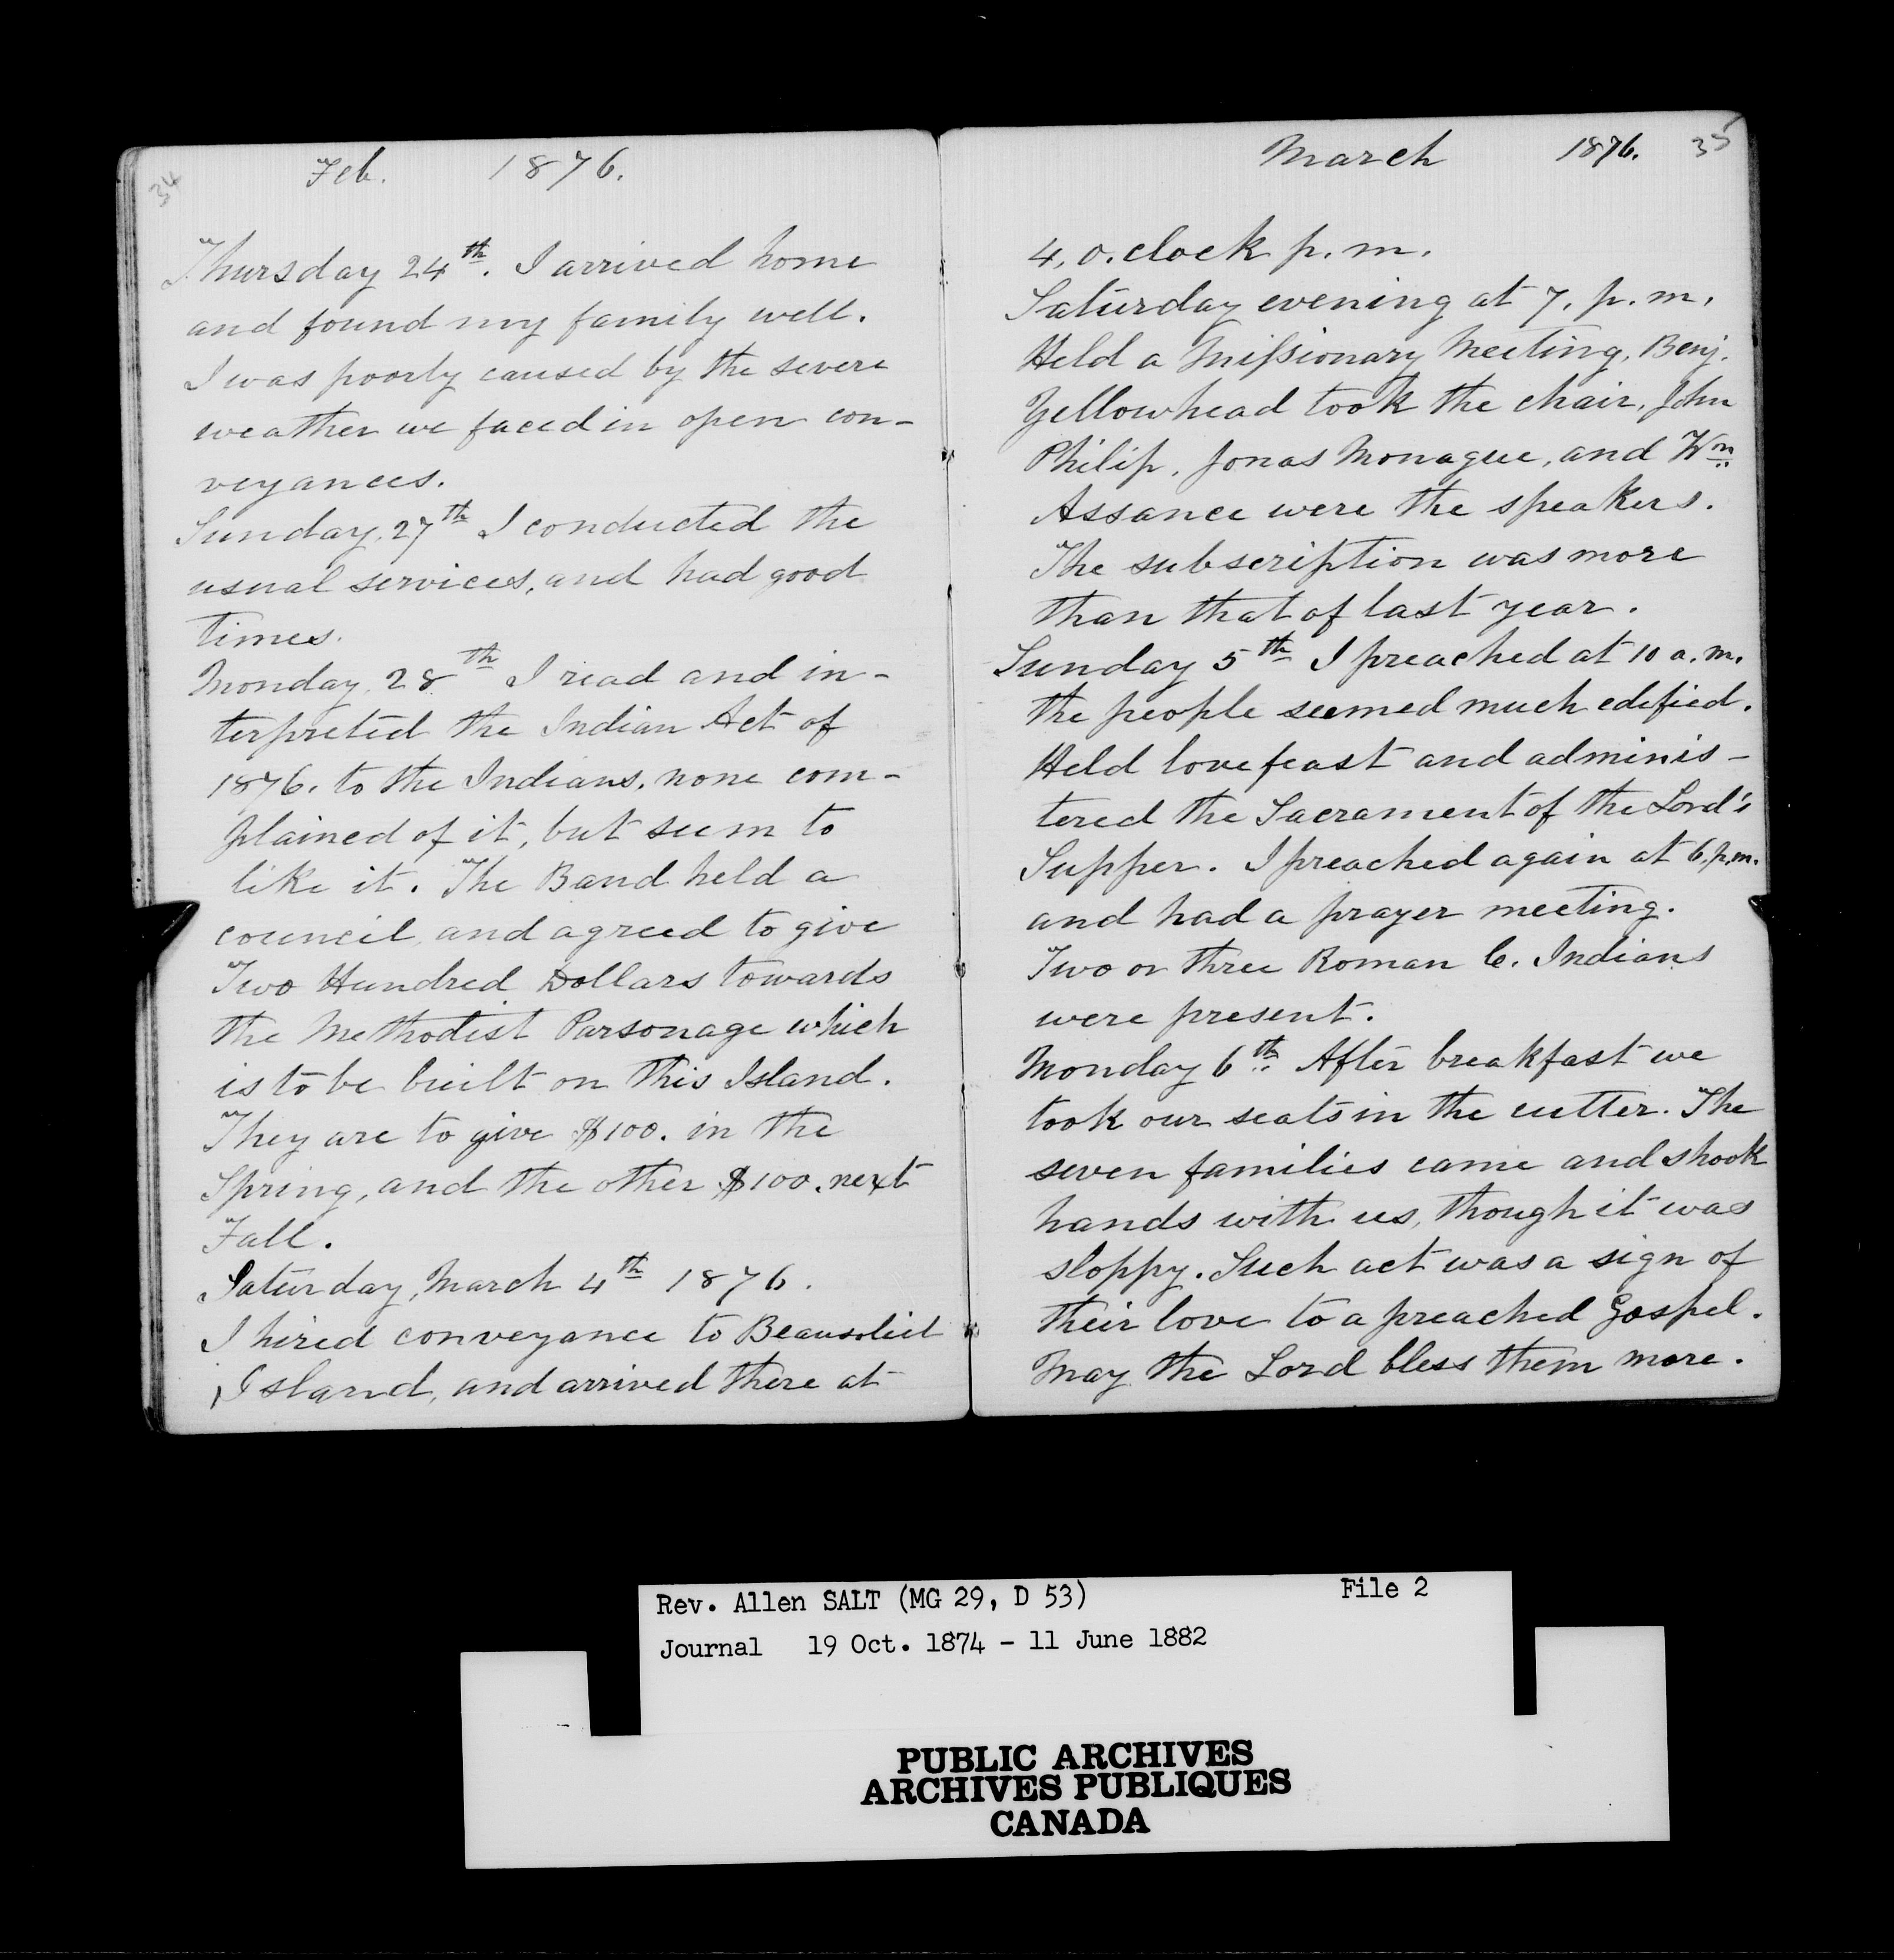 34
Feb. 1876.
Thursday 24th. I arrived home
and found my family well.
I was poorly caused by the severe
weather we faced in open con-
veyances.
Sunday, 27th I conducted the
usual services, and had good
times.
Monday, 28th I read and in-
terpreted the Indian Act of
1876. to the Indians, none com-
plained of it, but seem to
like it. The Band held a
council, and agreed to give
Two Hundred Dollars towards
the Methodist Parsonage which
is to be built on this Island.
They are to give $100. in the
Spring, and the other $100. next
Fall.
Saturday, March 4th 1876.
I hired conveyance to Beausoliel
Island, and arrived there at
March 1876. 35
4, o. clock p. m.
Saturday evening at 7, p. m.
Held a Missionary Meeting, Benj.
Yellowhead took the chair, John
Philip, Jonas Monague, and Wm
Assance were the speakers.
The subscription was more
than that of last year.
Sunday 5th I preached at 10 a. m.
the people seemed much edified.
Held lovefeast and adminis-
tered the Sacrament of the Lord's
Supper. I preached again at 6, p.m.
and had a prayer meeting.
Two or three Roman C. Indians
were present.
Monday 6th After breakfast we
took our seats in the cutter. The
seven families came and shook
hands with us, though it was
sloppy. Such act was a sign of
their love to a preached Gospel.
May the Lord bless them more.
Rev. Allen SALT (MG 29, D 53) File 2
Journal 19 Oct. 1874 - 11 June 1882
PUBLIC ARCHIVES
ARCHIVES PUBLIQUES
CANADA